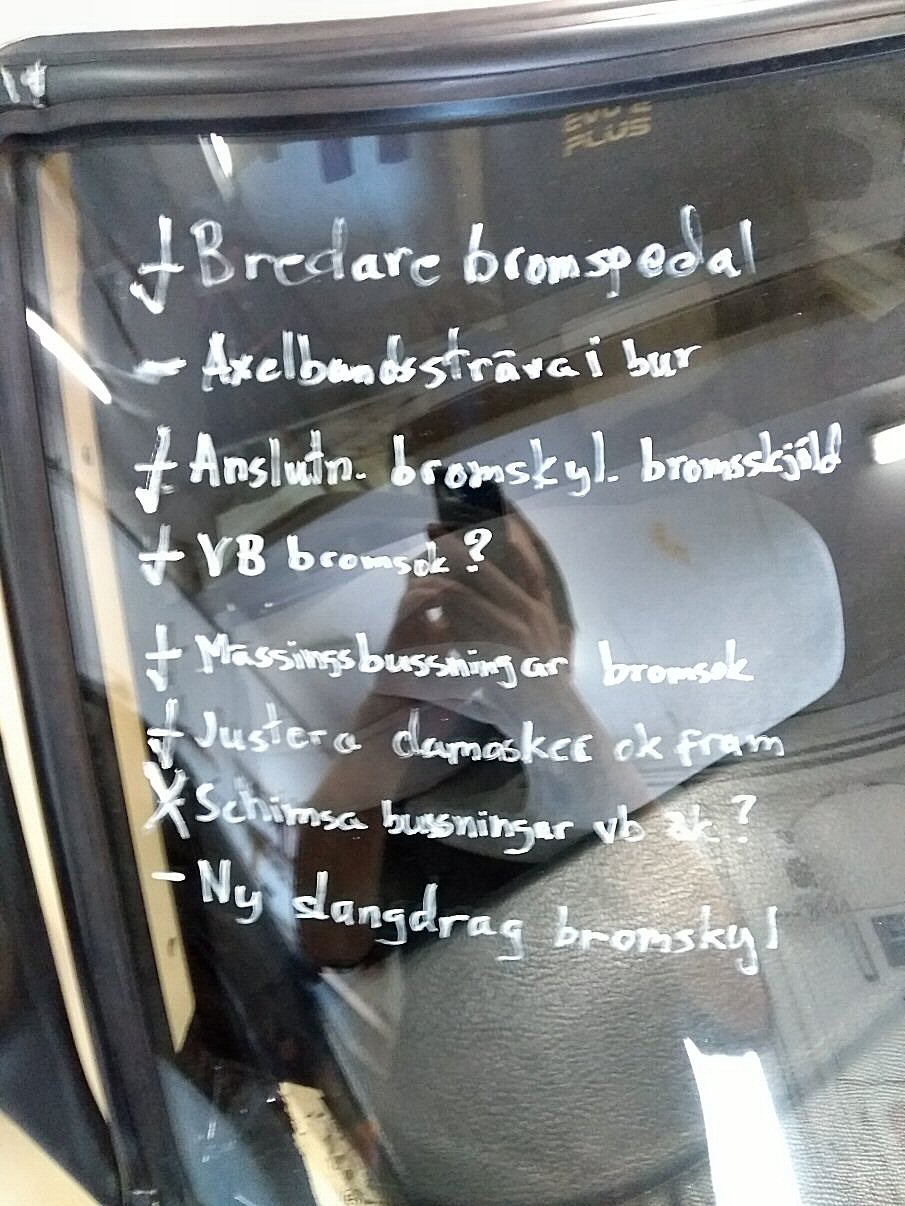 EVO 2
PLUS
Bredare bromspedal
- Axelbandssträva i bur
Anslutn. bromskyl. bromssköld
VB bromsok?
Mässingsbussningar bromsok
Justera damasker ok fram
X Schimsa bussningar vb ok?
- Ny slangdrag bromskyl